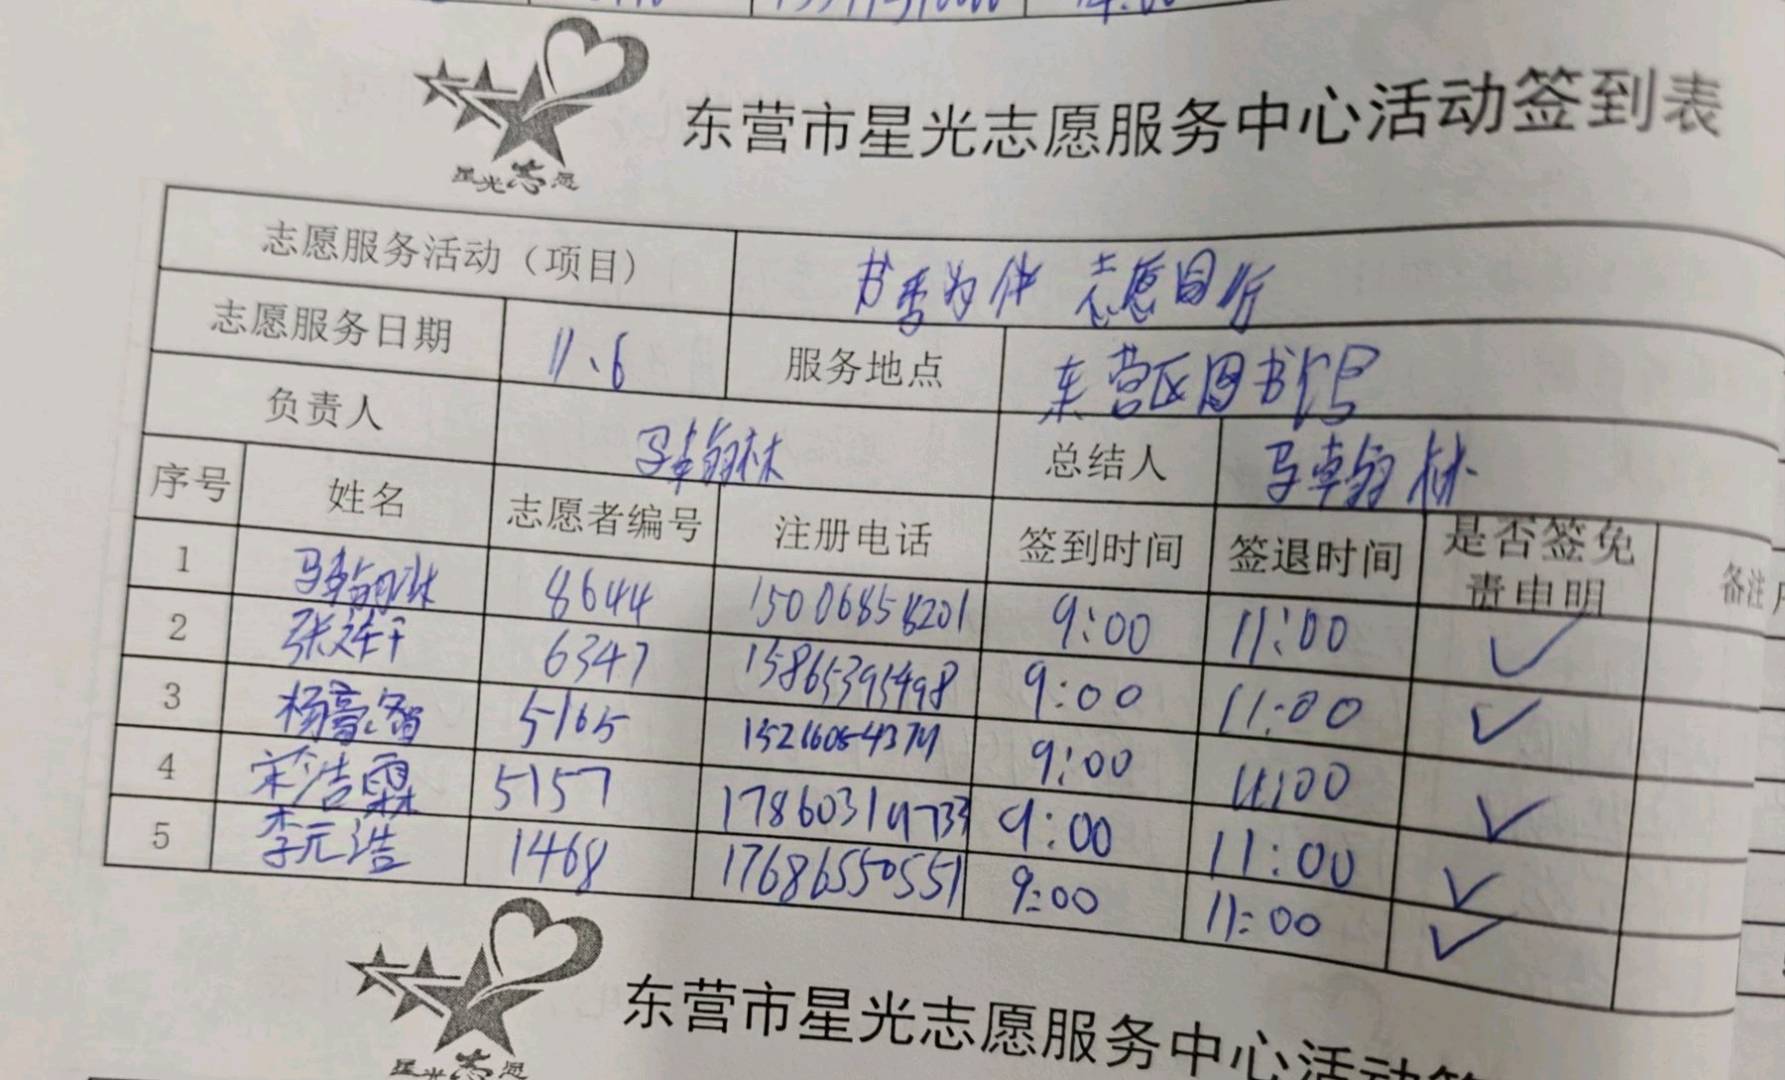 14:00
东营市星光志愿服务中心活动签到表
星光志愿
志愿服务活动（项目） 书香为伴 志愿同行
志愿服务日期 11、6 服务地点 东营区图书馆
负责人 马卓翰林 总结人 马卓翰林
序号 姓名 志愿者编号 注册电话 签到时间 签退时间 是否签免责申明 备注
1 马卓翰林 8644 15006858201 9:00 11:00 ✓
2 6347 15865395498 9:00 11:00 ✓
3 杨豪智 5165 9:00 11:00 ✓
4 宋浩霖 5157 9:00 11:00 ✓
5 李元浩 1468 17686550551 9:00 11:00 ✓
东营市星光志愿服务中心活动签
星光志愿